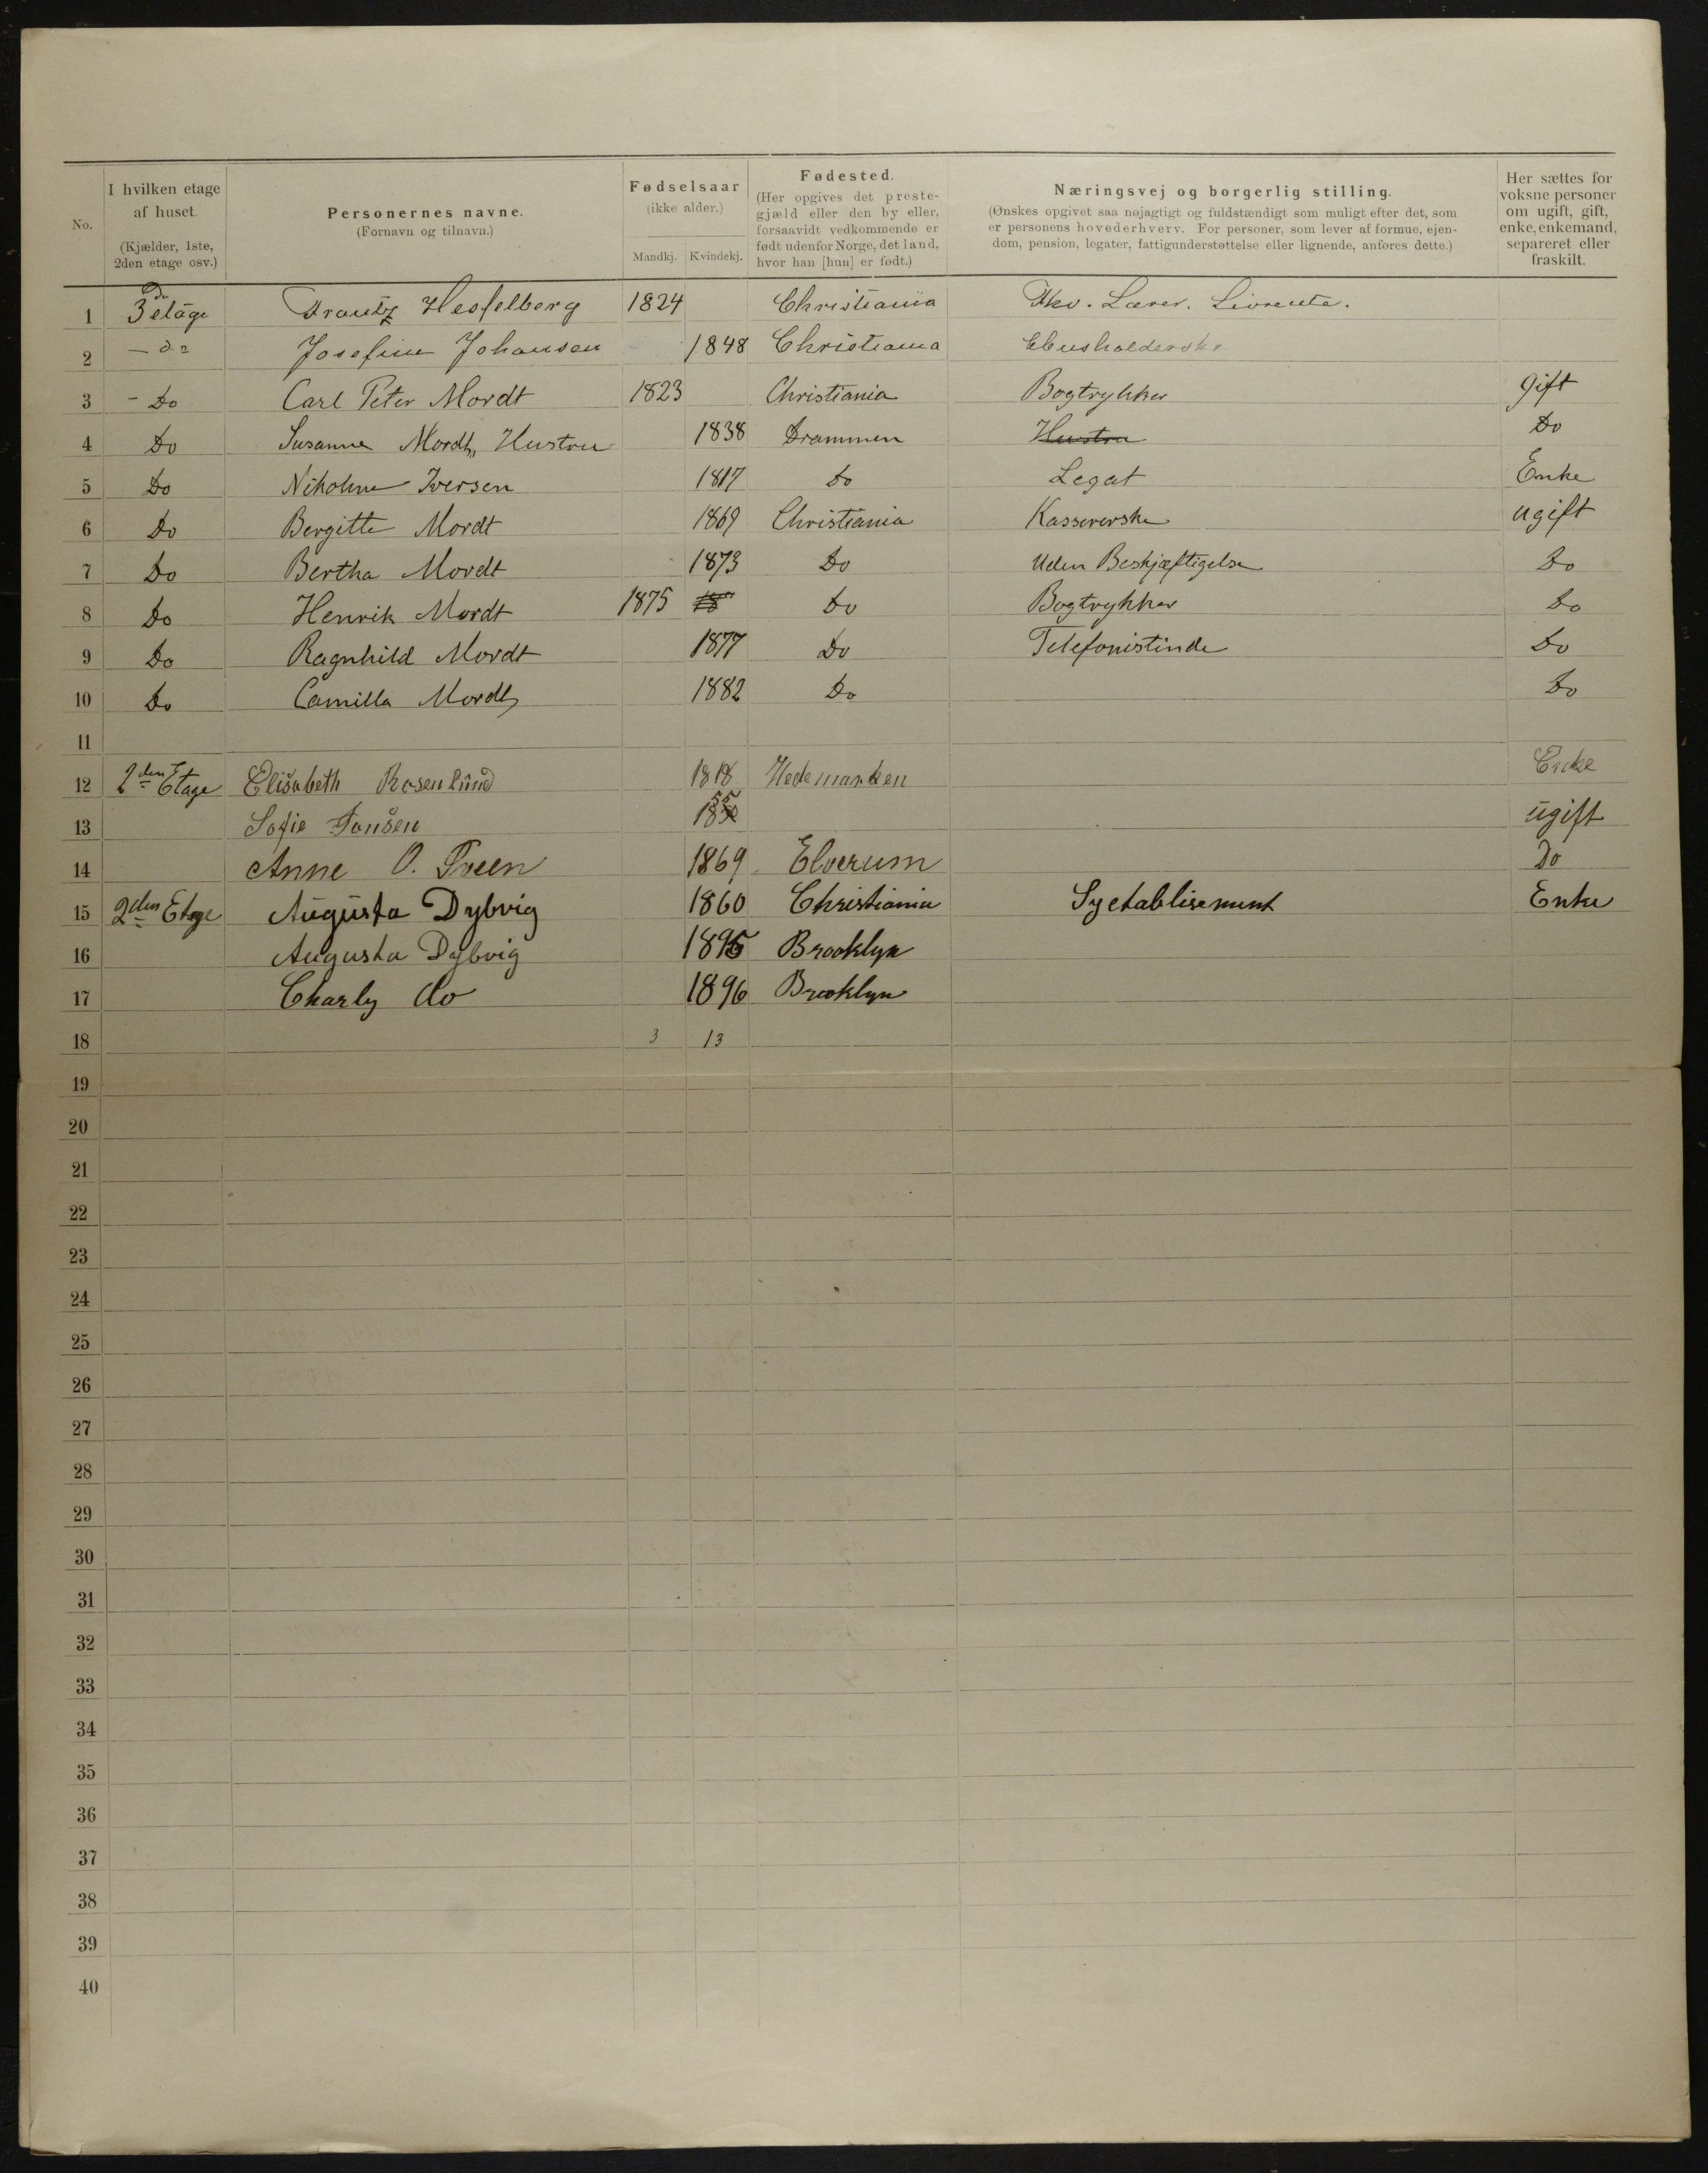 No.
I hvilken etage
af huset.
(Kjælder, 1ste,
2den etage osv.)
Personernes navne.
(Fornavn og tilnavn.)
Fødselsaar
(ikke alder.)
Mandkj. Kvindekj.
Fødested.
(Her opgives det preste-
gjæld eller den by eller,
forsaavidt vedkommende er
født udenfor Norge, det land,
hvor han [hun] er født.)
Næringsvej og borgerlig stilling.
(Ønskes opgivet saa nøjagtigt og fuldstændigt som muligt efter det, som
er personens hovederhverv. For personer, som lever af formue, ejen-
dom, pension, legater, fattigunderstøttelse eller lignende, anføres dette.)
Her sættes for
voksne personer
om ugift, gift,
enke, enkemand,
separeret eller
fraskilt.
1 3de etage Frantz Hesselberg 1824 Christiania Lærer. Livrente.
2 - do Josefine Johansen 1848 Christiania Husholderske
3 - Do Carl Peter Mordt 1823 Christiania Bogtrykker gift
4 Do Susanne Mordt, Hustru 1838 Drammen Hustru Do
5 Do Nikoline Iversen 1817 Do Legat Enke
6 Do Bergitte Mordt 1869 Christiania Kassererske ugift
7 Do Bertha Mordt 1873 Do Uden Beskjæftigelse Do
8 Do Henrik Mordt 1875 18 Do Bogtrykker Do
9 Do Ragnhild Mordt 1877 Do Telefonistinde Do
10 Do Camilla Mordt 1882 Do Do
11
12 2den Etage Elisabeth Rosenlund 1818 Hedemarken Enke
13 Sofie Jansen 1855 ugift
14 Anne O. Tveen 1869 Elverum Do
15 2den Etage Augusta Dybvig 1860 Christiania Syetablisement Enke
16 Augusta Dybvig 1895 Brooklyn
17 Charly do 1896 Brooklyn
18 3 13
19
20
21
22
23
24
25
26
27
28
29
30
31
32
33
34
35
36
37
38
39
40